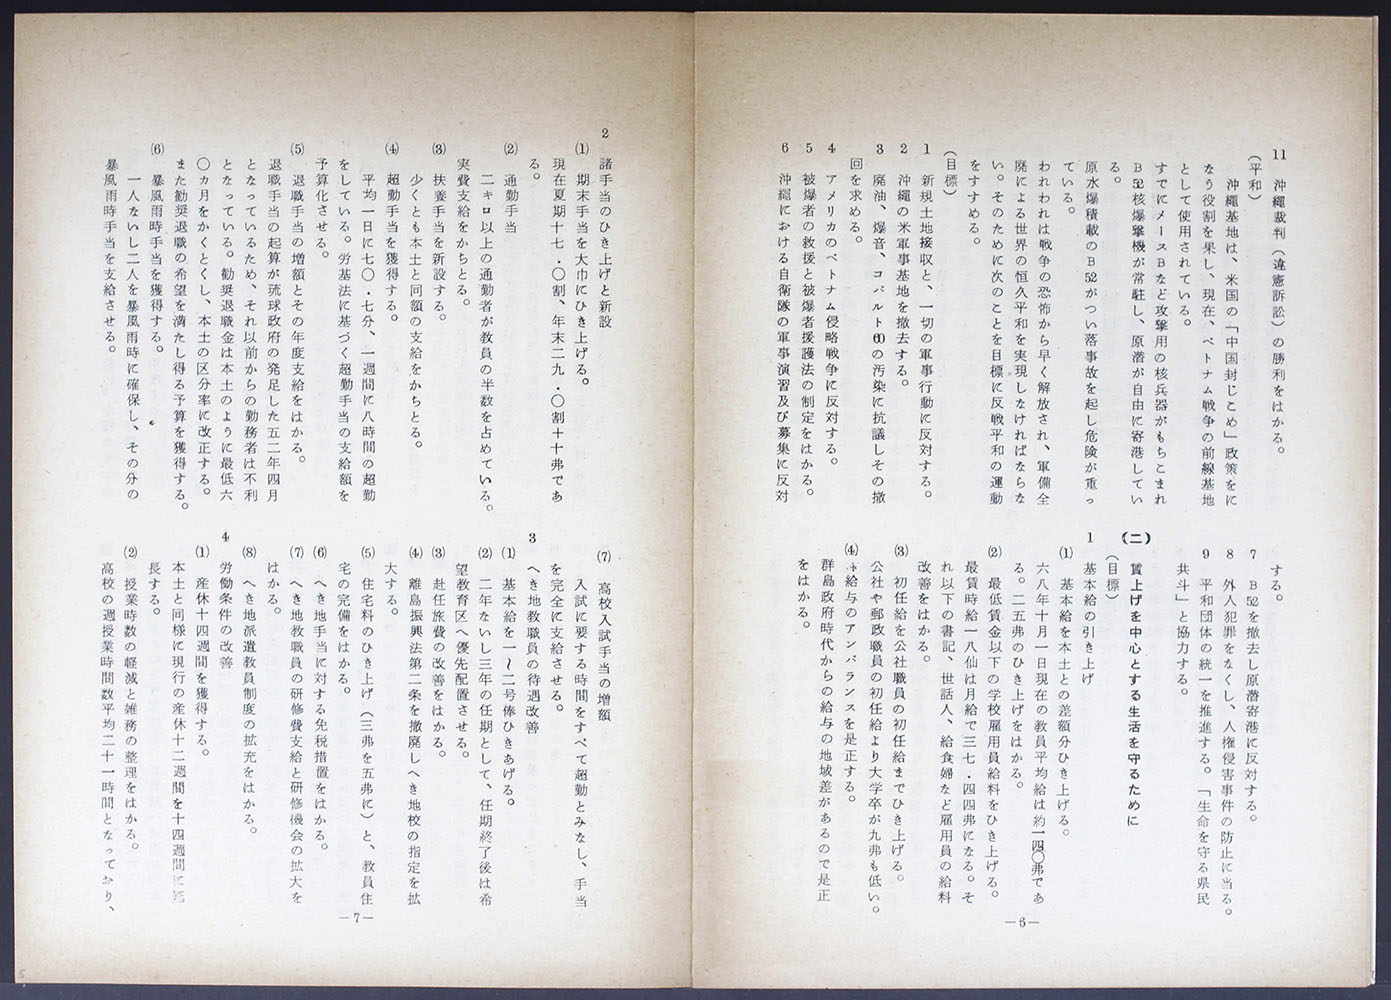 11 沖縄裁判（違憲訴訟）の勝利をはかる。
（平和）
沖縄基地は、米国の「中国封じこめ」政策をに
なう役割を果し、現在、ベトナム戦争の前線基地
として使用されている。
すでにメースBなど攻撃用の核兵器がもちこまれ
B52核爆撃機が常駐し、原潜が自由に寄港してい
る。
原水爆積載のB52がつい落事故を起し危険が重っ
ている。
われわれは戦争の恐怖から早く解放され、軍備全
廃による世界の恒久平和を実現しなければならな
い。そのために次のことを目標に反戦平和の運動
をすすめる。
（目標）
1 新規土地接収と、一切の軍事行動に反対する。
2 沖縄の米軍事基地を撤去する。
3 廃油、爆音、コバルト60の汚染に抗議しその撤
回を求める。
4 アメリカのベトナム侵略戦争に反対する。
5 被爆者の救援と被爆者援護法の制定をはかる。
6 沖縄における自衛隊の軍事演習及び募集に反対
する。
7 B52を撤去し原潜寄港に反対する。
8 外人犯罪をなくし、人権侵害事件の防止に当る。
9 平和団体の統一を推進する。「生命を守る県民
共斗」と協力する。
(二) 賃上げを中心とする生活を守るために
（目標）
1 基本給の引き上げ
(1) 基本給を本土との差額分ひき上げる。
六八年十月一日現在の教員平均給は約一四〇弗であ
る。二五弗のひき上げをはかる。
(2) 最低賃金以下の学校雇用員給料をひき上げる。
最賃時給一八仙は月給で三七・四四弗になる。そ
れ以下の書記、世話人、給食婦など雇用員の給料
改善をはかる。
(3) 初任給を公社職員の初任給までひき上げる。
公社や郵政職員の初任給より大学卒が九弗も低い。
(4) 給与のアンバランスを是正する。
群島政府時代からの給与の地域差があるので是正
をはかる。
—6—
2 諸手当のひき上げと新設
(1) 期末手当を大巾にひき上げる。
現在夏期十七・〇割、年末二九・〇割十十弗であ
る。
(2) 通勤手当
二キロ以上の通勤者が教員の半数を占めている。
実費支給をかちとる。
(3) 扶養手当を新設する。
少くとも本土と同額の支給をかちとる。
(4) 超勤手当を獲得する。
平均一日に七〇・七分、一週間に八時間の超勤
をしている。労基法に基づく超勤手当の支給額を
予算化させる。
(5) 退職手当の増額とその年度支給をはかる。
退職手当の起算が琉球政府の発足した五二年四月
となっているため、それ以前からの勤務者は不利
となっている。勧奨退職金は本土のように最低六
〇ヵ月をかくとくし、本土の区分率に改正する。
また勧奨退職の希望を満たし得る予算を獲得する。
(6) 暴風雨時手当を獲得する。
一人ないし二人を暴風雨時に確保し、その分の
暴風雨時手当を支給させる。
(7) 高校入試手当の増額
入試に要する時間をすべて超勤とみなし、手当
を完全に支給させる。
3 へき地教職員の待遇改善
(1) 基本給を一〜二号俸ひきあげる。
(2) 二年ないし三年の任期として、任期終了後は希
望教育区へ優先配置させる。
(3) 赴任旅費の改善をはかる。
(4) 離島振興法第二条を撤廃しへき地校の指定を拡
大する。
(5) 住宅料のひき上げ（三弗を五弗に）と、教員住
宅の完備をはかる。
(6) へき地手当に対する免税措置をはかる。
(7) へき地教職員の研修費支給と研修機会の拡大を
はかる。
(8) へき地派遣教員制度の拡充をはかる。
4 労働条件の改善
(1) 産休十四週間を獲得する。
本土と同様に現行の産休十二週間を十四週間に延
長する。
(2) 授業時数の軽減と雑務の整理をはかる。
高校の週授業時間数平均二十一時間となっており、
—7—